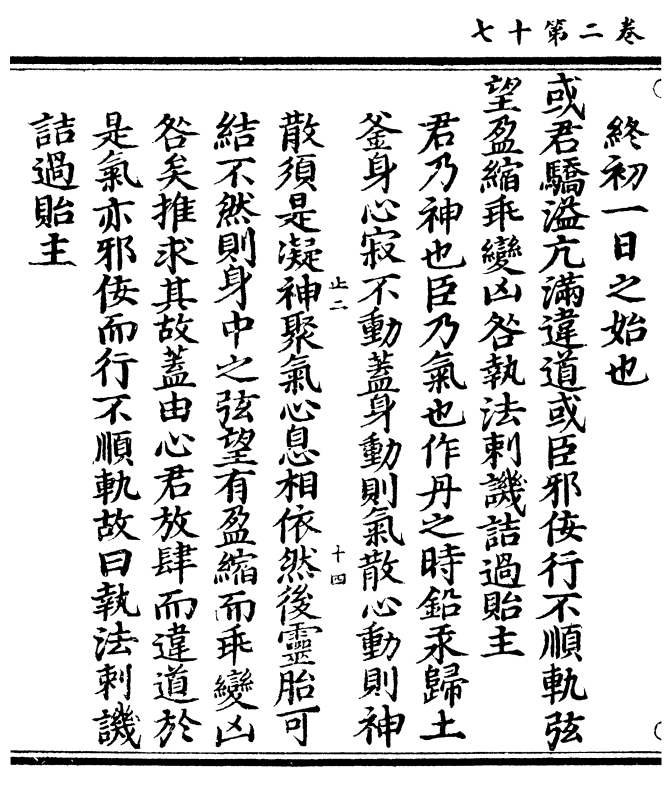 卷二第十七
終初一日之始也
或君驕溢亢滿違道或臣邪佞行不順軌弦
望盈縮乖變凶咎執法刺譏詰過貽主
君乃神也臣乃氣也作丹之時鉛汞歸土
釜身心寂不動蓋身動則氣散心動則神
止二
十四
散須是凝神聚氣心息相依然後靈胎可
結不然則身中之弦望有盈縮而乖變凶
咎矣推求其故蓋由心君放肆而違道於
是氣亦邪佞而行不順軌故曰執法刺譏
詰過貽主